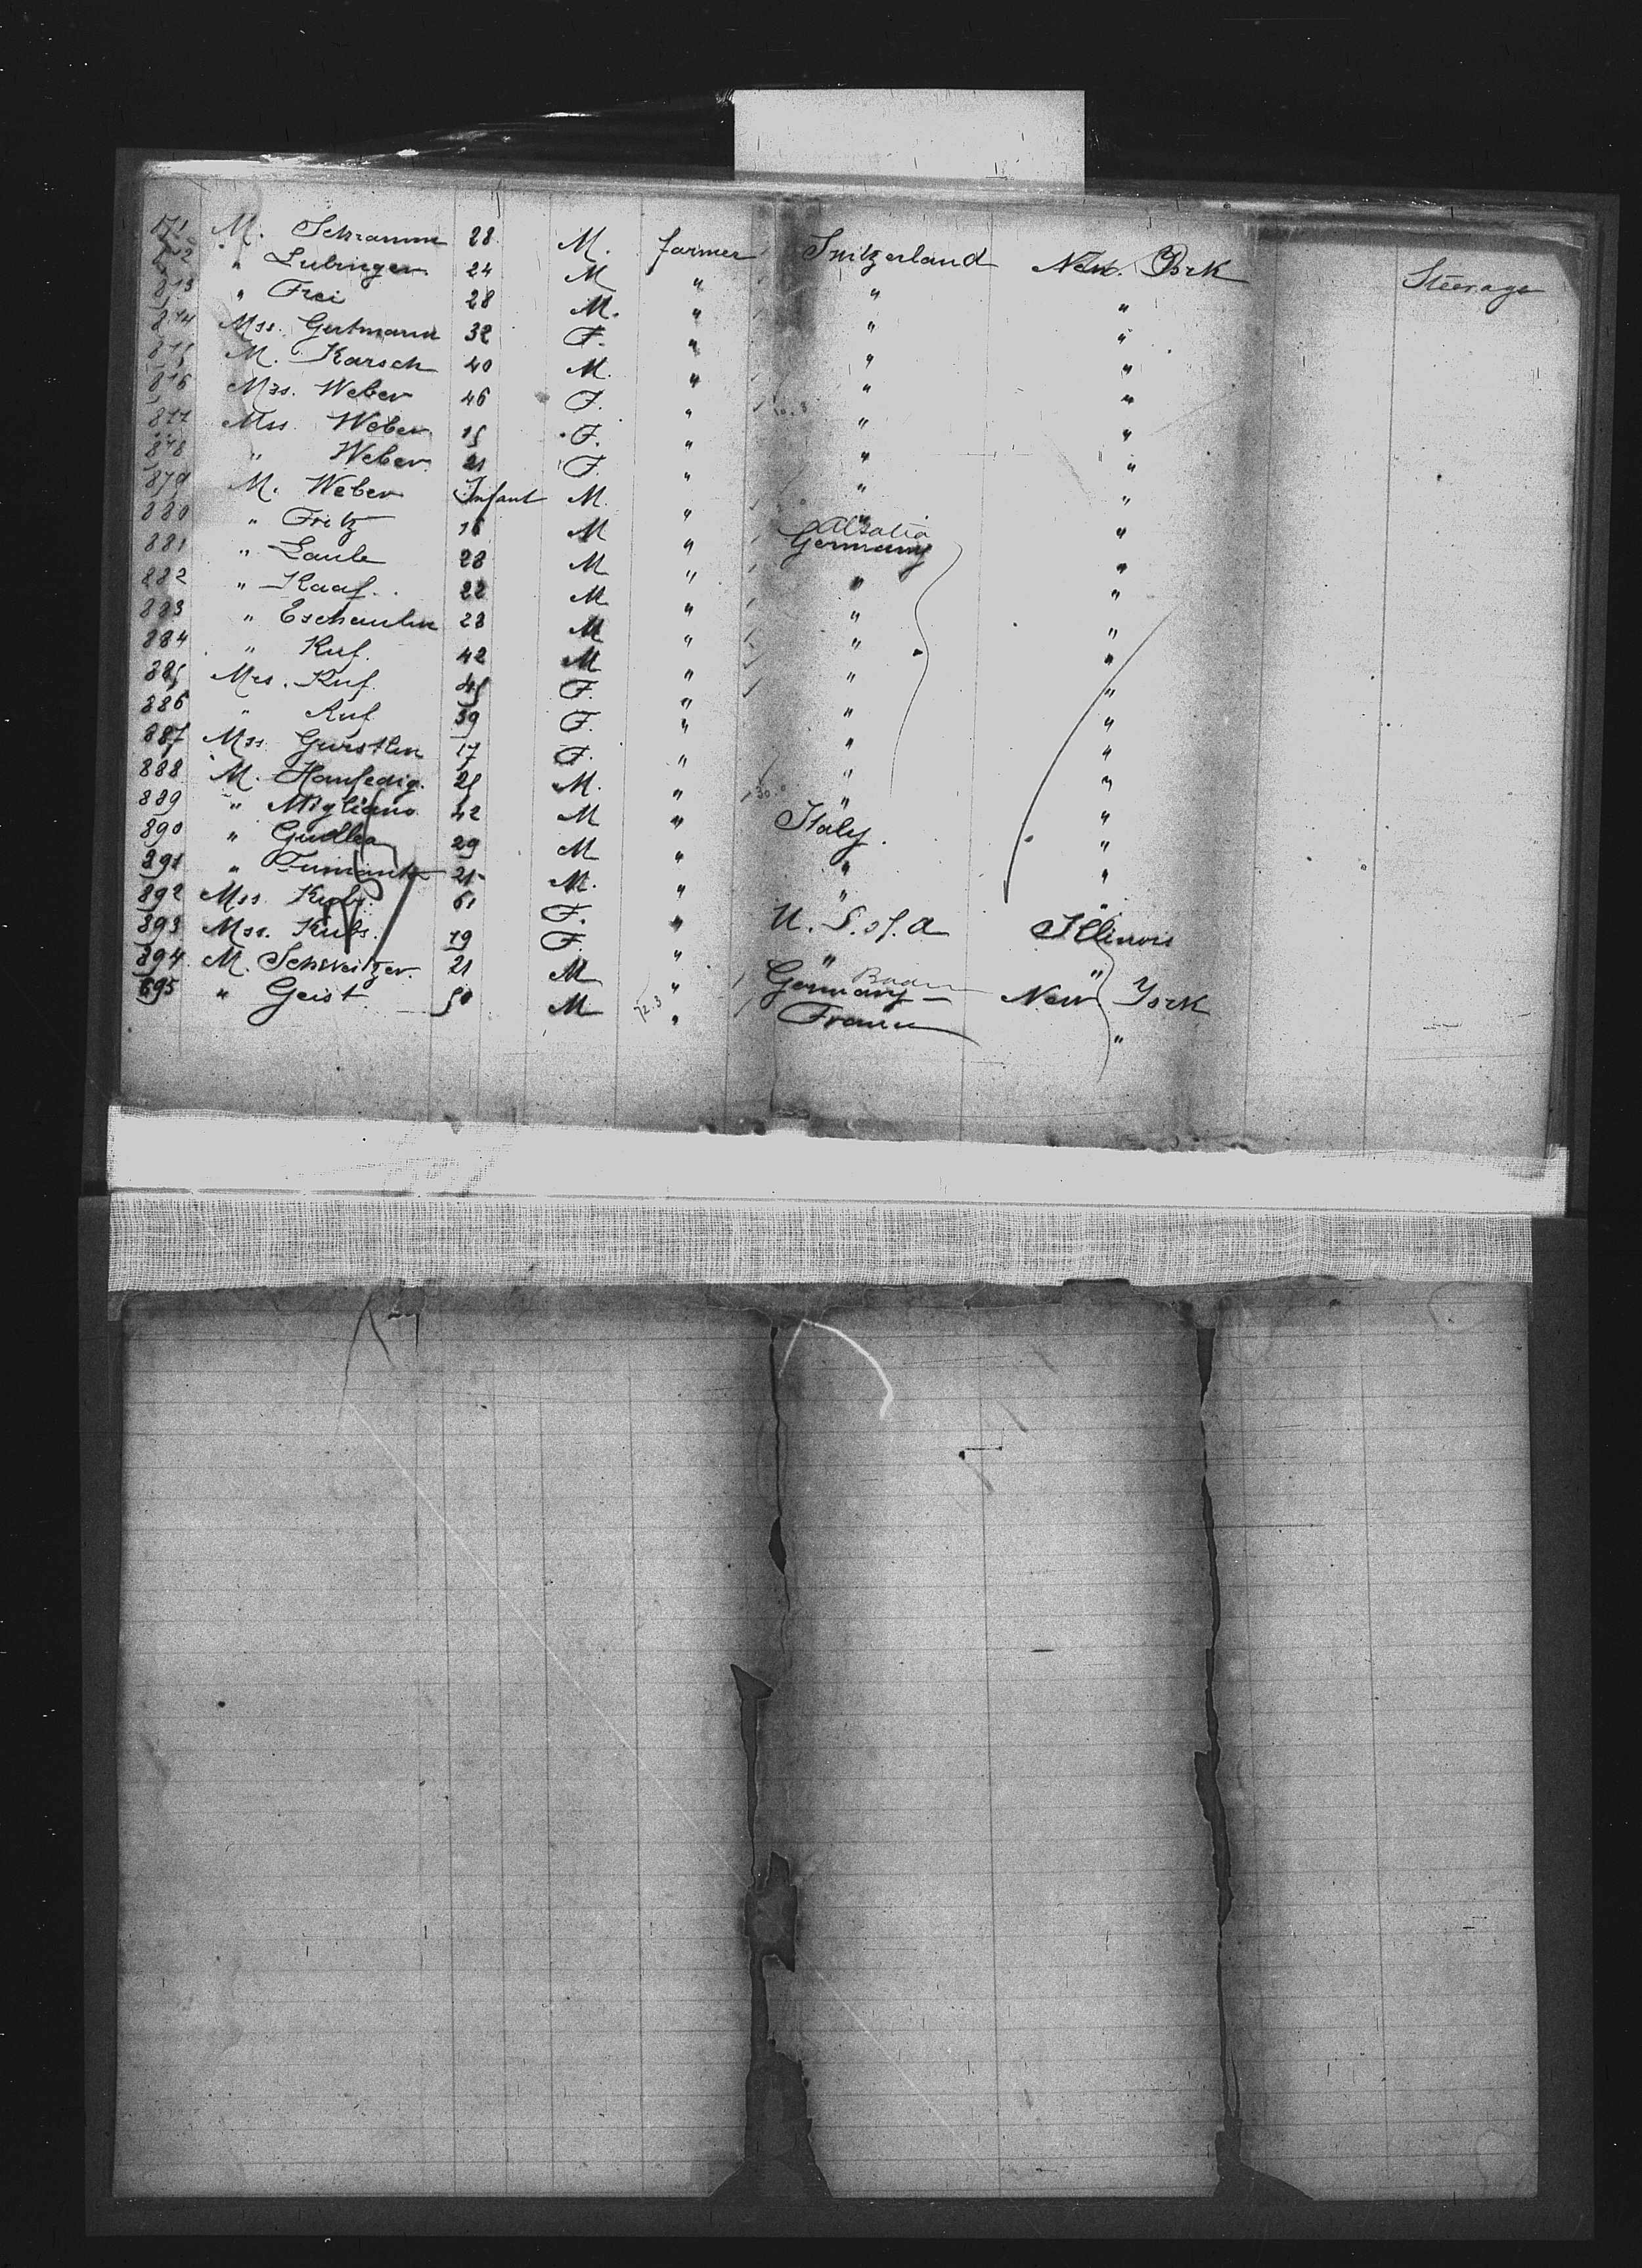 871 M. Schramm 28 M. farmer Switzerland New. York Steerage
872 " Lubinger 24 M " " "
873 " Frei 28 M. " " "
874 Mss. Gertmann 32 F. " " "
875 M. Karsch 40 M. " " "
876 Mss. Weber 46 F. " " "
877 Mss Weber 15 F. " " "
878 " Weber 21 F. " " "
879 M. Weber Infant M. " " "
880 " Fritz M " Alsatia Germany "
881 " Laule 28 M " " "
882 " Kaaf. 22 M " " "
883 " Eschenlin 28 M " " "
884 " Ruf. 42 M " " "
885 Mss. Ruf. 45 F. " " "
886 " Ruf 39 F. " " "
887 Mss. Gerstlin 17 F. " " "
888 M. Haufedig. M. " " "
889 " Migliano 42 M " Italy. "
890 " 29 M " " "
891 " M. " " "
892 Mss 61 F. " U. S. of. A Illinois
893 Mss. 19 F. " " "
894 M. Schweitzer. 21 M " Germany Baden New York
895 " Geist 50 M " France "